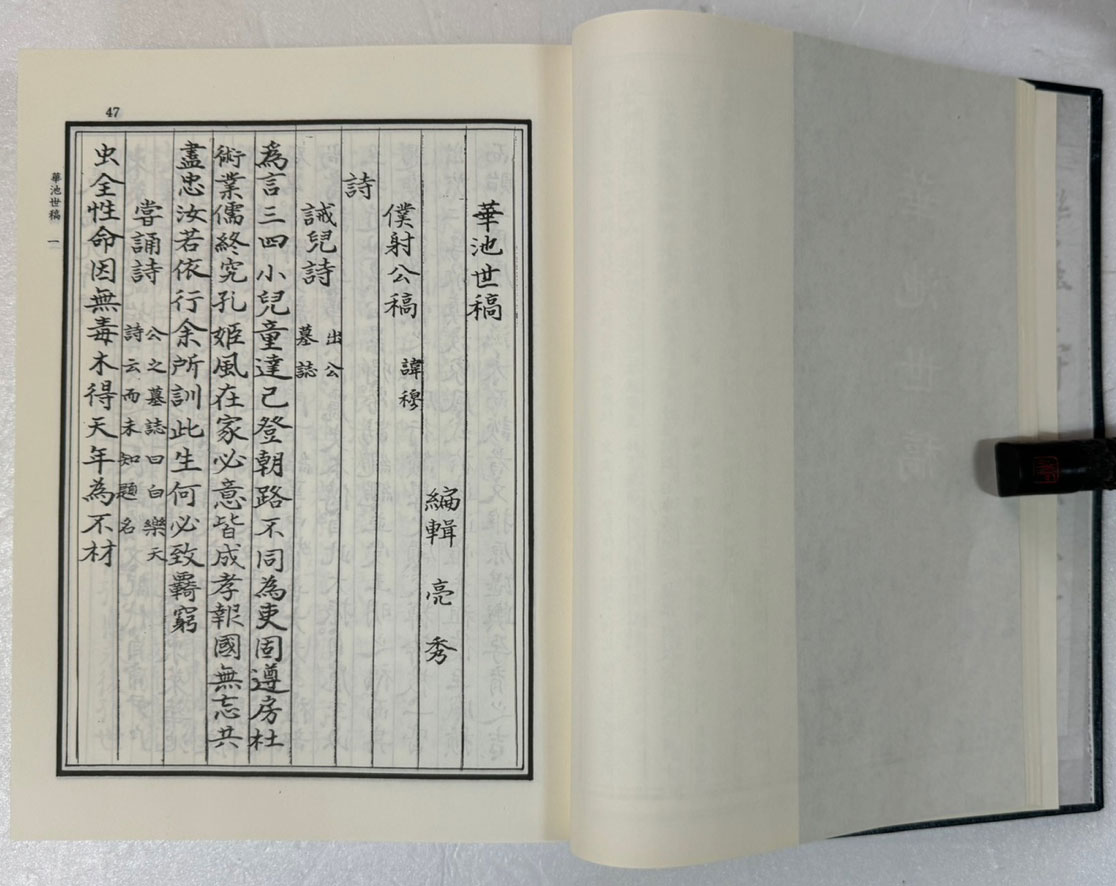 47
華池世稿 一
華池世稿
編輯 亮 秀
僕射公稿 諱穆
詩
誡兒詩 出公墓誌
為言三四小兒童達己登朝路不同為吏固遵房杜
術業儒終究孔姬風在家必意皆成孝報國無忘共
盡忠汝若依行余所訓此生何必致羇窮
甞誦詩 公之墓誌曰白樂天詩云而未知題名
虫全性命因無毒木得天年為不材
華池世稿